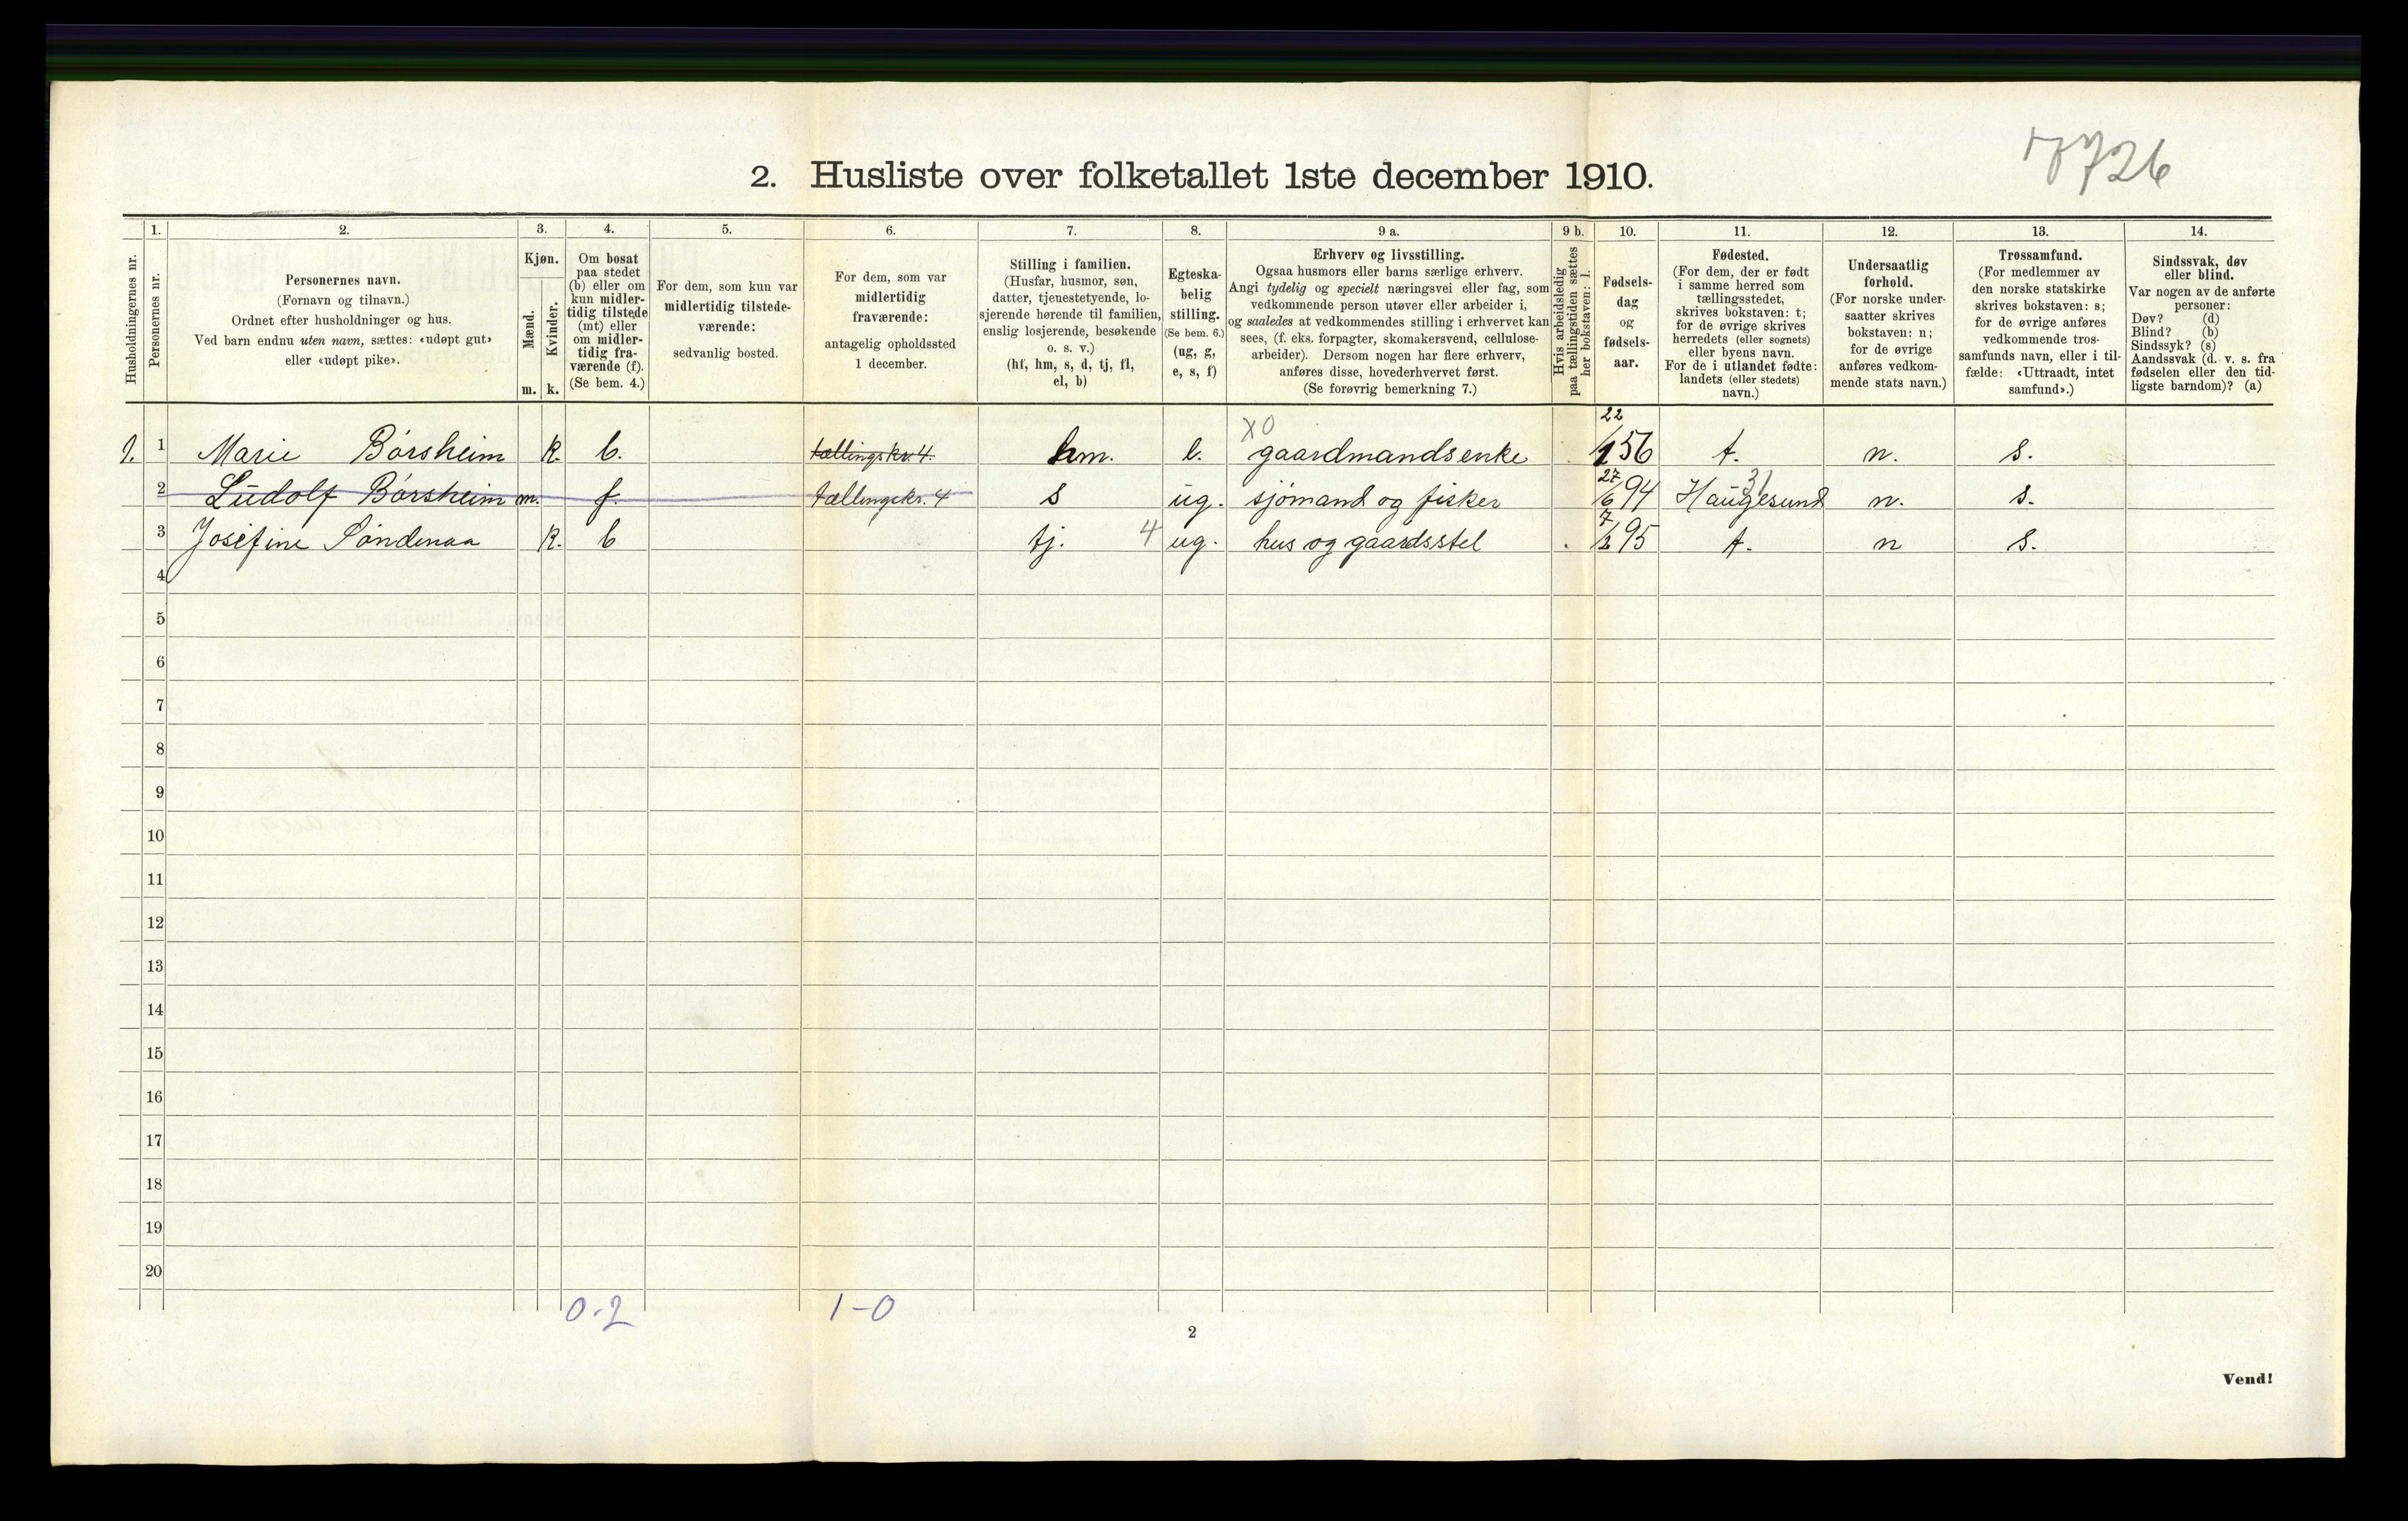 7726
2. Husliste over folketallet 1ste december 1910.
Husholdningernes nr.
1.
Personernes nr.
2.
Personernes navn.
(Fornavn og tilnavn.)
Ordnet efter husholdninger og hus.
Ved barn endnu uten navn, sættes: «udøpt gut»
eller «udøpt pike».
3.
Kjøn.
Mænd. Kvinder.
m. k.
4.
Om bosat
paa stedet
(b) eller om
kun midler-
tidig tilstede
(mt) eller
om midler-
tidig fra-
værende (f).
(Se bem. 4.)
5.
For dem, som kun var
midlertidig tilstede-
værende:
sedvanlig bosted.
6.
For dem, som var
midlertidig
fraværende:
antagelig opholdssted
1 december.
7.
Stilling i familien.
(Husfar, husmor, søn,
datter, tjenestetyende, lo-
sjerende hørende til familien,
enslig losjerende, besøkende
o. s. v.)
(hf, hm, s, d, tj, fl,
el, b)
8.
Egteska-
belig
stilling.
(Se bem. 6.)
(ug, g,
e, s, f)
9 a.
Erhverv og livsstilling.
Ogsaa husmors eller barns særlige erhverv.
Angi tydelig og specielt næringsvei eller fag, som
vedkommende person utøver eller arbeider i,
og saaledes at vedkommendes stilling i erhvervet kan
sees, (f. eks. forpagter, skomakersvend, cellulose-
arbeider). Dersom nogen har flere erhverv,
anføres disse, hovederhvervet først.
(Se forøvrig bemerkning 7.)
9 b.
Hvis arbeidsledig
paa tællingstiden sættes
her bokstaven: l.
10.
Fødsels-
dag
og
fødsels-
aar.
11.
Fødested.
(For dem, der er født
i samme herred som
tællingsstedet,
skrives bokstaven: t;
for de øvrige skrives
herredets (eller sognets)
eller byens navn.
For de i utlandet fødte:
landets (eller stedets)
navn.)
12.
Undersaatlig
forhold.
(For norske under-
saatter skrives
bokstaven: n;
for de øvrige
anføres vedkom-
mende stats navn.)
13.
Trossamfund.
(For medlemmer av
den norske statskirke
skrives bokstaven: s;
for de øvrige anføres
vedkommende tros-
samfunds navn, eller i til-
fælde: «Uttraadt, intet
samfund».)
14.
Sindssvak, døv
eller blind.
Var nogen av de anførte
personer:
Døv? (d)
Blind? (b)
Sindssyk? (s)
Aandssvak (d. v. s. fra
fødselen eller den tid-
ligste barndom)? (a)
1. 1 Marie Børsheim k. b. tællingskr. 4. hm. e. x0 gaardmandsenke 22/1 56 t. n. s.
2 Ludolf Børsheim m. f tællingskr. 4 s ug. sjømand og fisker 27/6 94 Haugesund 31 n. s.
3 Josefine Søndenaa k. b tj. 4 ug. hus og gaardsstel 7/2 95 t. n s.
4
5
6
7
8
9
10
11
12
13
14
15
16
17
18
19
20
0-2 1-0
2
Vend!